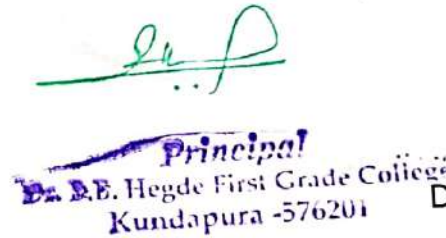 Principal
Dr. B.B. Hegde First Grade College
D
Kundapura -576201